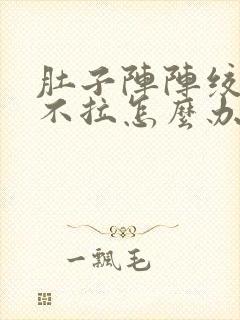 肚子陣陣絞
不拉怎麼办
一飄毛